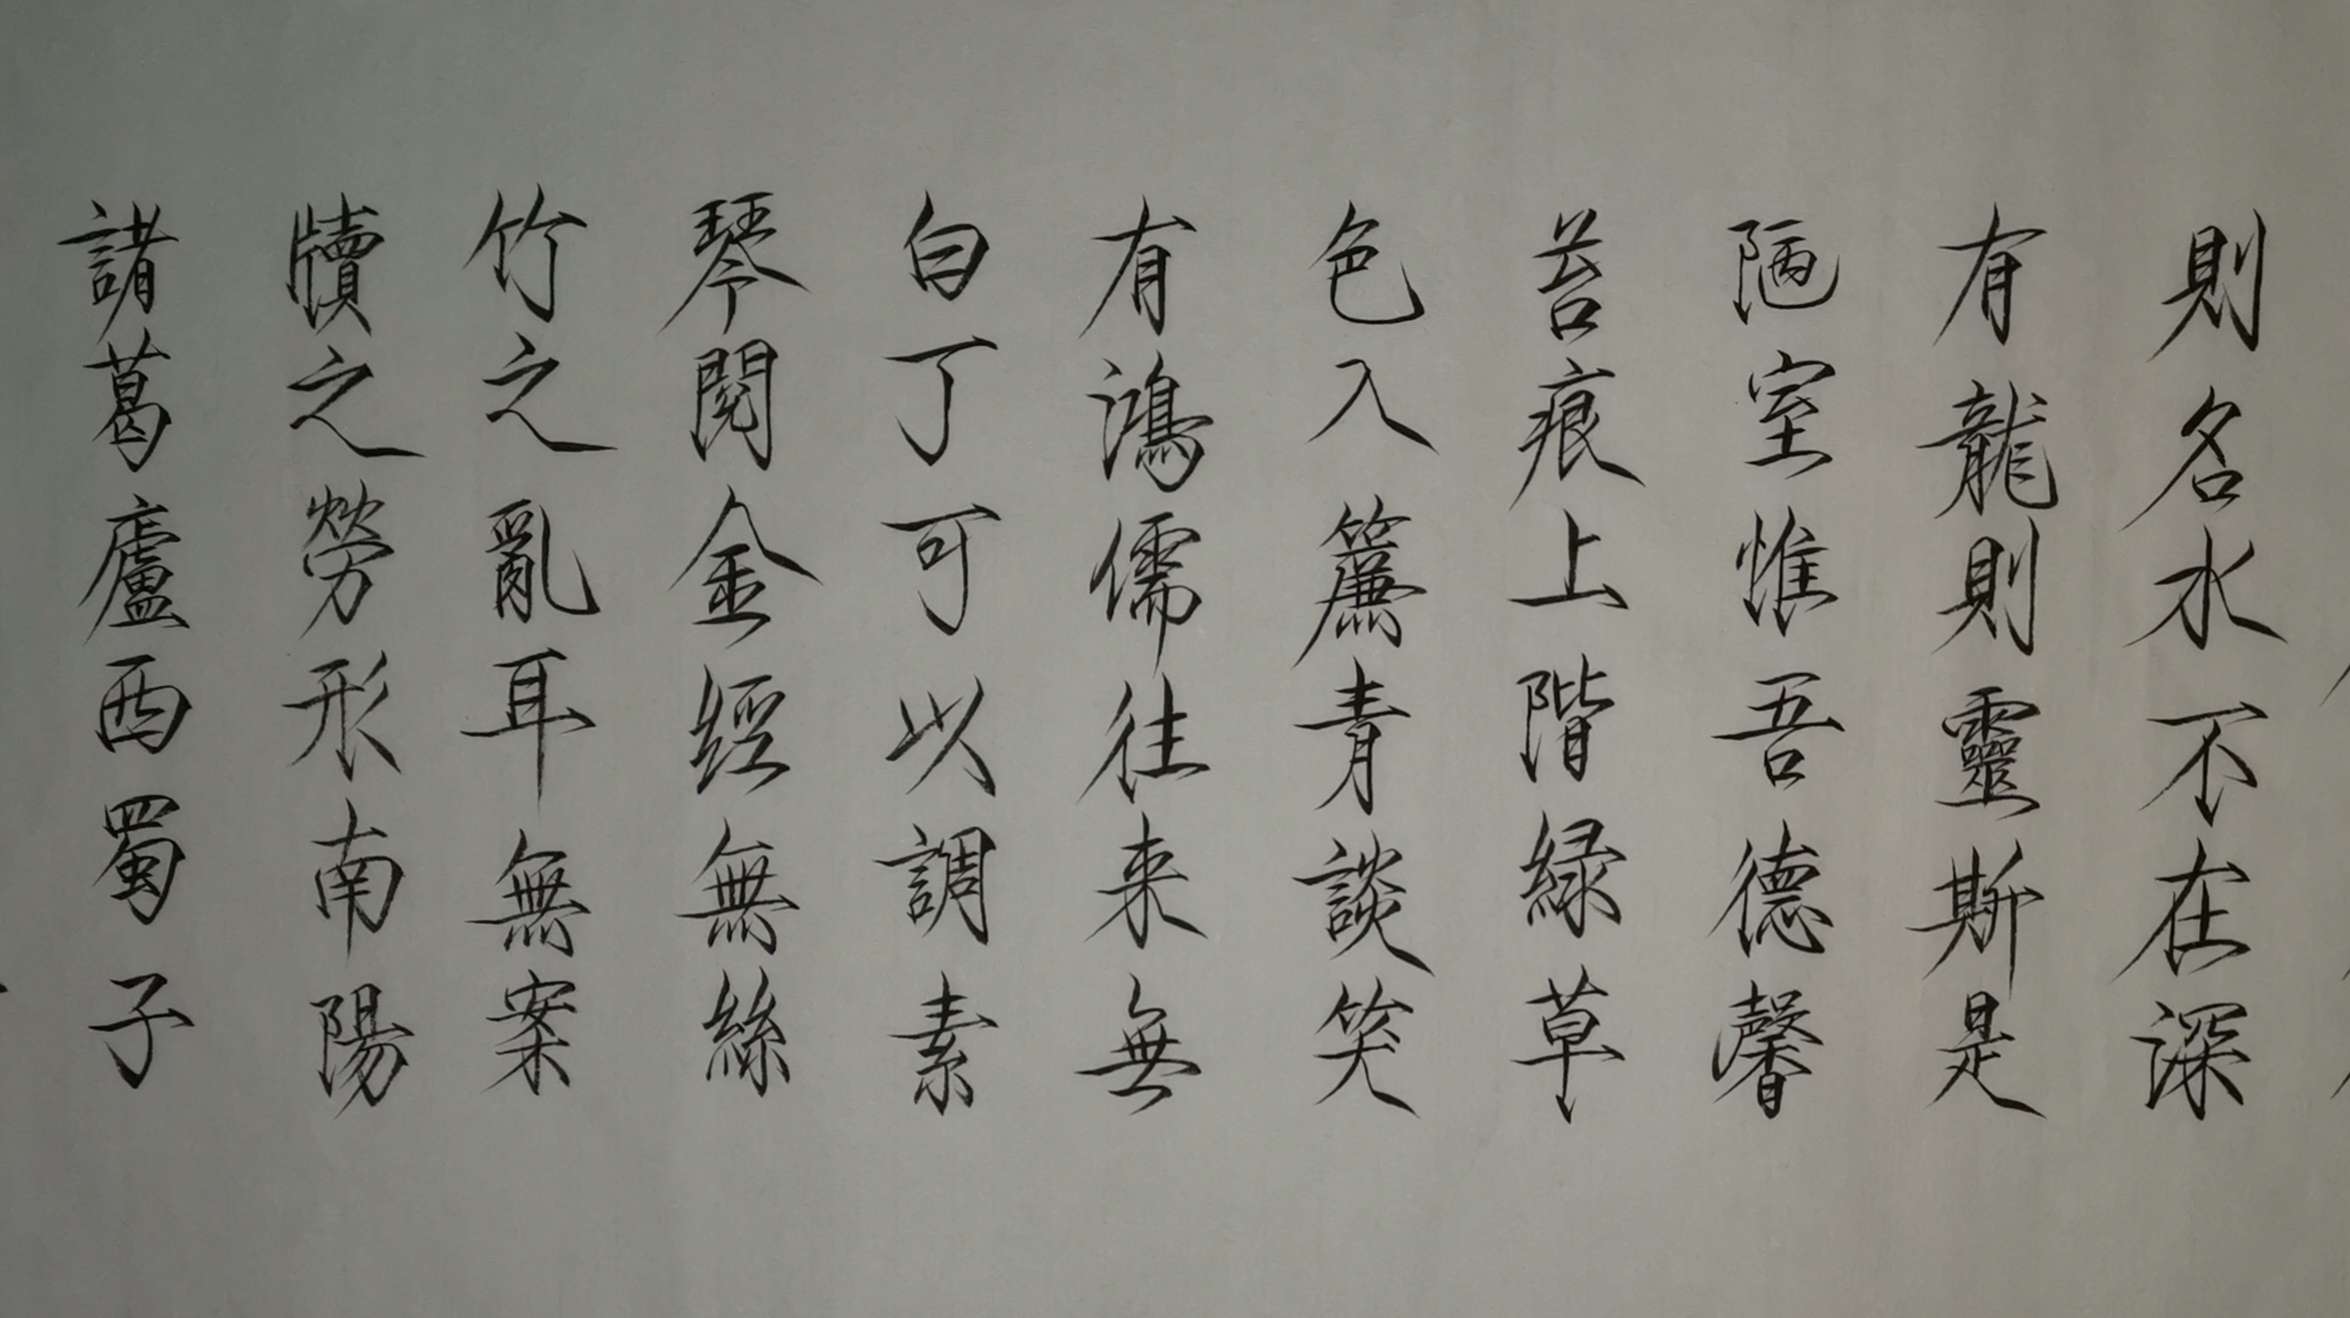 則名水不在深
有龍則靈斯是
陋室惟吾德馨
苔痕上階緑草
色入簾青談笑
有鴻儒往来無
白丁可以調素
琴閱金經無絲
竹之亂耳無案
牘之勞形南陽
諸葛廬西蜀子